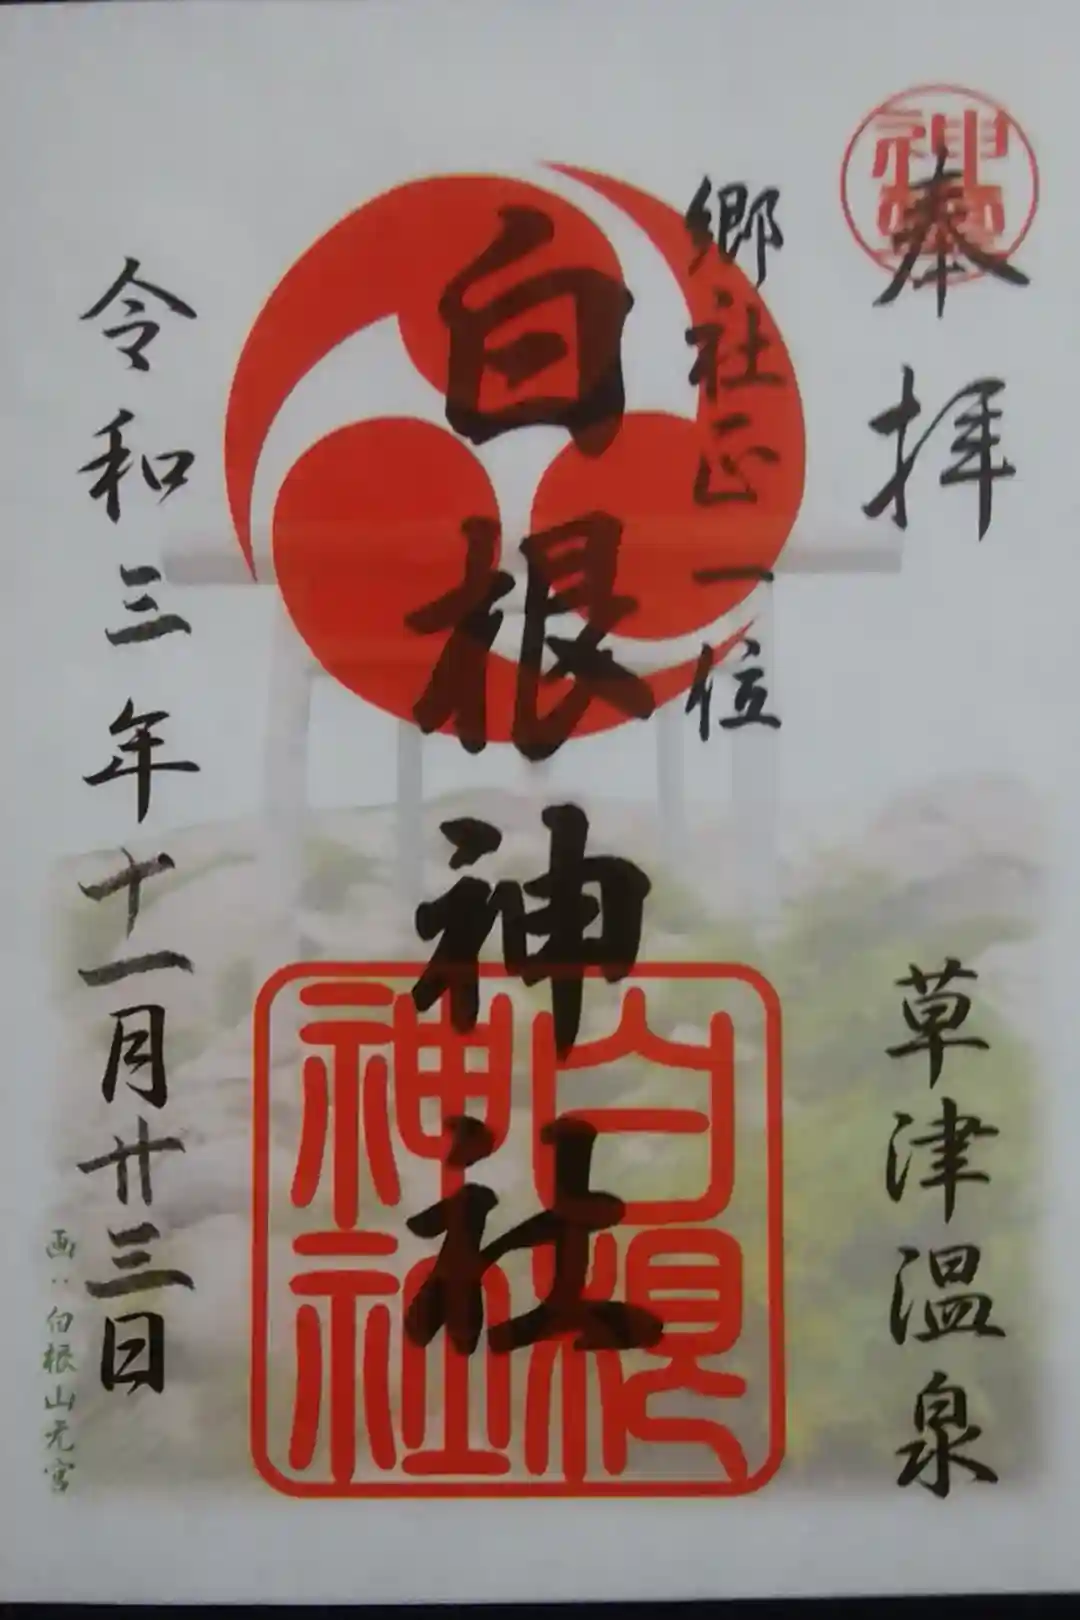 奉拝
草津温泉
郷社正一位
白根神社
白根
神社
令和三年十一月廿三日
画:白根山元宮